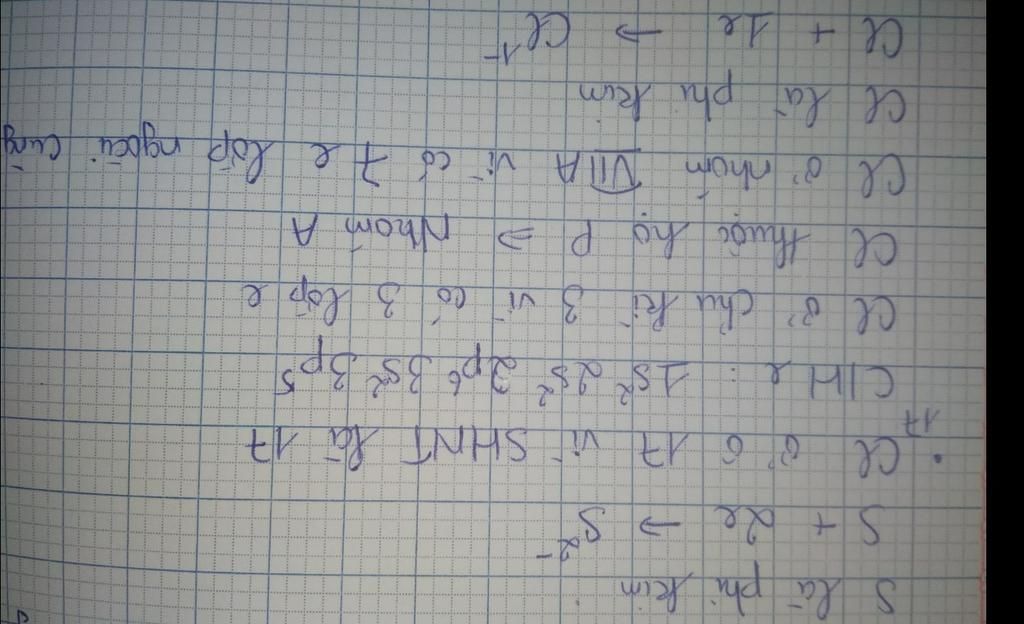 S là phi kim
S + 2e → S²⁻
• ₁₇Cl ở ô 17 vì SHNT là 17
CHH e : 1s² 2s² 2p⁶ 3s² 3p⁵
Cl ở chu kì 3 vì có 3 lớp e
Cl thuộc họ p ⇒ Nhóm A
Cl ở nhóm VIIA vì có 7 e lớp ngoài cùng
Cl là phi kim
Cl + 1e → Cl¹⁻